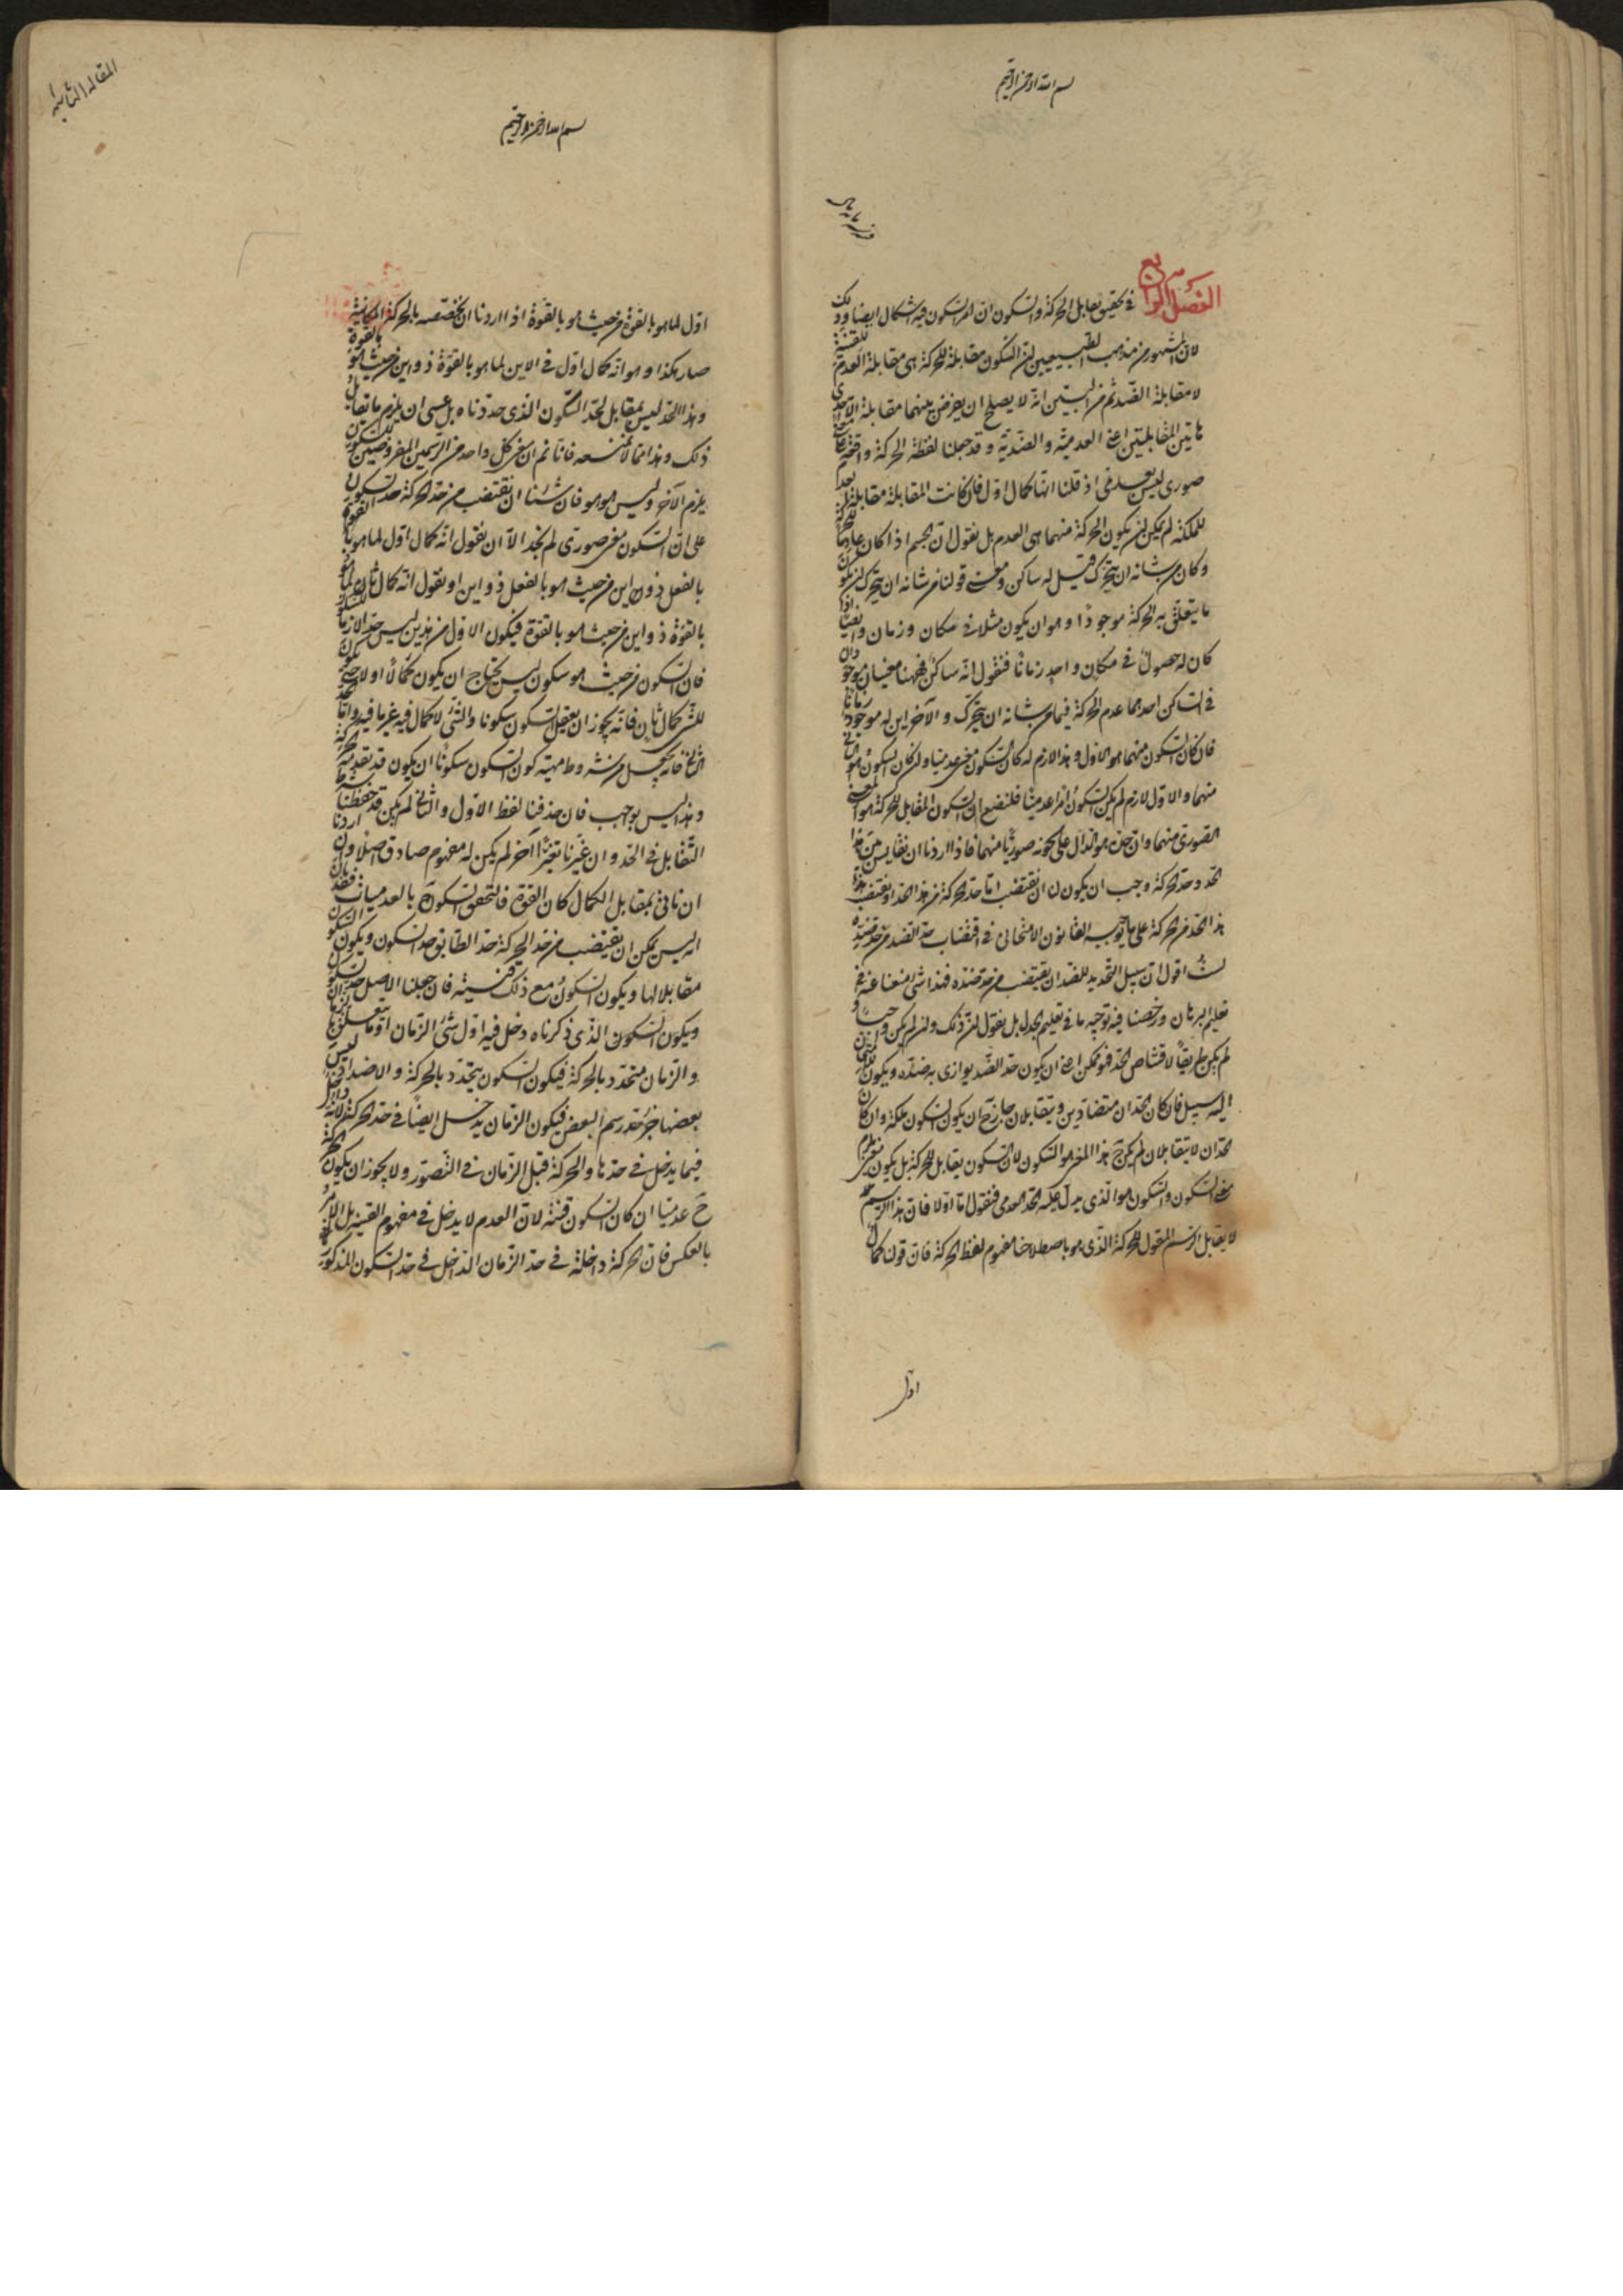 بسم الله الرحمن الرحيم
الفصل الرابع في تحقيق تقابل الحركة والسكون ان امر السكون فيه اشكال ايضا وذلك
لان المشهور من مذهب الطبيعيين ان السكون مقابلة للحركة هى مقابلة العدم للقنية
لا مقابلة الضد ثم من البين انه لا يصلح ان يفرض بينهما مقابلة الا احدى
هاتين المقابلتين اعنى العدمية والضدية وقد جعلنا لفظة الحركة واقعة على معنى
صورى ليس بعدمى اذ قلنا انها كمال اول فان كانت المقابلة مقابلة العدم
للملكة لم يمكن ان يكون الحركة منهما هى العدم بل نقول ان الجسم اذا كان عادما للحركة
وكان من شانه ان يتحرك قيل له ساكن ومعنى قولنا من شانه ان يتحرك ان يكون
ما يتعلق به الحركة موجودا وهو ان يكون مثلا فى مكان وزمان وايضا اذا
كان له حصول فى مكان واحد زمانا فنقول انه ساكن فههنا معنيان موجودان
فى الساكن احدهما عدم الحركة فيما من شانه ان يتحرك والآخر اين له موجود زمانا
فان كان السكون منهما هو الاول وهذا لازم له كان السكون معنى عدميا وان كان السكون هو الثانى
منهما والاول لازم لم يكن السكون امرا عدميا فلنضع ان السكون المقابل للحركة هو المعنى
الصورى منهما وان حده هو الدال على كونه صوريا منهما فاذا اردنا ان نقايس بين هذا
الحد وحد الحركة وجب ان يكون لنا ان نقتضب اما حد الحركة من هذا الحد او نقتضب هذا
هذا الحد من الحركة على ما يوجبه القانون الامتحانى فى اقتضاب حد الضد من حد ضده
لست اقول ان سبيل التحديد للضد ان يقتضب من حد ضده فهذا شئ منعنا عنه فى
تعليم البرهان ورخصنا فيه بوجه ما فى تعليم الجدل بل نقول ان ذلك وان لم يكن واجبا و
لم يكن طريقا لاقتناص الحد فهو ممكن اعنى ان يكون حد الضد يوازى به ضده ويكون للشئ
اليه سبيل فان كان الحدان متضادين ويتقابلان جاز ح ان يكون السكون ملكة وان كان
الحدان لا يتقابلان لم يكن ح هذا المعنى هو السكون لان السكون يقابل الحركة بل يكون معنى يلزم
معنى السكون والسكون هو الذى يدل عليه الحد العدمى فنقول اما اولا فان هذا الرسم
لا يقابل الرسم المقول للحركة الذى هو باصطلاحنا مفهوم لفظ الحركة فان قولنا كمال
اول
المقالة الثانية
بسم الله الرحمن الرحيم
اول لما هو بالقوة من حيث هو بالقوة اذا اردنا ان نخصصه بالحركة المكانية
صار هكذا وهو انه كمال اول فى الاين لما هو بالقوة ذو اين من حيث هو بالقوة
وهذا الحد ليس بمقابل لحد السكون الذى حددناه بل عسى ان يلزم ما تقابل
ذلك وهذا مما لا نمنعه فانا نعم ان معنى كل واحد من الرسمين المفروضين للسكون
يلزم الآخر وليس هو هو فان شئنا ان نقتضب من حد الحركة حد السكون
على ان السكون معنى صورى لم نجد الا ان نقول انه كمال اول لما هو بالقوة
بالفعل ذو اين من حيث هو بالفعل ذو اين او نقول انه كمال ثان لما هو
بالقوة ذو اين من حيث هو بالقوة فيكون الاول من هذين ليس حدا لازما للسكون
فان السكون من حيث هو سكون ليس يحتاج ان يكون كمالا اولا حتى يكون
للشئ كمال ثان فانه يجوز ان يعقل السكون سكونا والشئ لا كمال فيه غير ما فيه واما الحد
الثانى فانه يجعل من شروط ماهية كون السكون سكونا ان يكون قد تقدمه حركة
وهذا ليس بواجب فان حذفنا لفظ الاول والثانى لم يكن قد حفظنا شرط
التقابل فى الحد وان غيرنا تغيرا آخر لم يكن له مفهوم صادق اصلا وان اردنا
ان ناتى بمقابل الكمال كان القوة فالتحق السكون ح بالعدميات فقد بان
انه ليس يمكن ان يقتضب من حد الحركة حد الطابق حد السكون ويكون السكون
مقابلا لها ويكون السكون مع ذلك قنية فان جعلنا الاصل حد السكون
ويكون السكون الذى ذكرناه دخل فيه اول شئ الزمان او ما يتعلق بالزمان
والزمان متحدد بالحركة فيكون السكون يتحدد بالحركة والاضداد ليس
بعضها جزء رسم البعض فيكون الزمان يدخل ايضا فى حد الحركة لانه داخل
فيما يدخل فى حدها والحركة قبل الزمان فى التصور ولا يجوز ان يكون الحركة
ح عدميا ان كان السكون قنية لان العدم لا يدخل فى مفهوم القنية بل الامر
بالعكس فان الحركة داخلة فى حد الزمان الداخل فى حد السكون المذكور